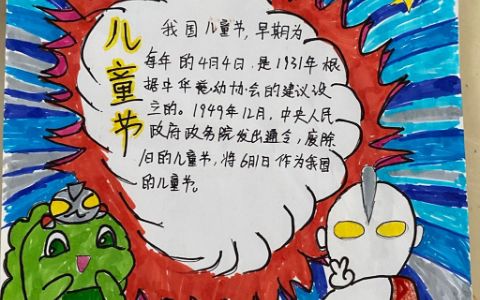 儿童节
我国儿童节,早期为
每年的4月4日,是1931年根
据中华慈幼协会的建议设
立的。1949年12月,中央人民
政府政务院发出通令,废除
旧的儿童节,将6月1日作为我国
的儿童节。